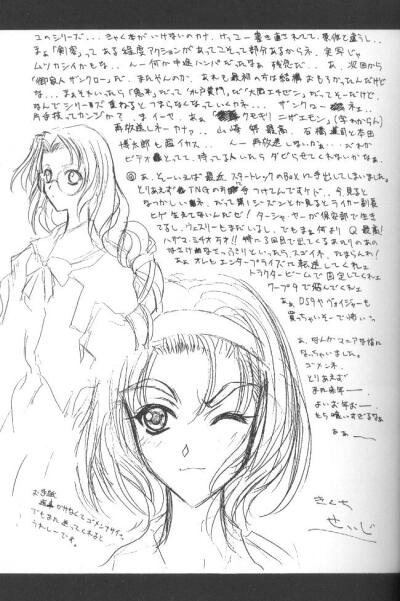 このシリーズ...、きゃく本がいけないのカナ。けっコー書き直されてて、原作と違うし..
まぁ「剣客」ってある程度アクションがあってこそって部分あるからネ、実写じゃ
ムツカシイかもな.. んー何か中途ハンパだったなぁ 残念だ... あ、次回から
「御家人ザンクロー」だ、またやんのか、あれも最初の方は結構 おもろかったんだけど
な... まぁそれいったら「鬼平」だって「水戸黄門」だ「大岡エチゼン」だってそーだけど、
なんでシリーズ重ねるとつまらなくなっていくカネ...
ザンクローネェ..
片手技ってカンゴか?、ま イーヤ、あぁ「クモキリ ニザエモン」(字わからん)
再放送しネーカナァ.. 山崎努最高、石橋蓮司と本田
博太郎も超イカス.. んー再放送しないカナ...だれか
ビデオとってて、持ってる人いたら ダビらせてくれないかなぁ。
あ、そーいえば最近 スタートレックのBoxに手出してしまいました。
とりあえずTNGの方手つけてんですケド、今見ると
なつかしいネ、だって第1シーズンとか見るとライカー副長
ヒゲ生えてないんだゼ! ターシャ・ヤーが保安部で生き
てるし、ウェスリーもまだいるし、でもまぁ何よりQ最高!
ハザマ・ミチオ万才!! 特に3回目で出てくるあたりのあの
なさけなさっぷりといったら、スゴイネ、たまらんわ!
あぁ オレもエンタープライズに転送してくれェ
トラクタービームで固定してくれェ
ワープ9で飛んでくれェ
あぁ DS9やヴォイジャーも
買っちゃいそーで怖いっ
あ、なんかマニアな話に
なっちゃいました。
ゴメンネ.
とりあえず
また来年ー
よいお年おー
もち喰いすぎるなぁ
あぁー
きくち
せいじ
お手紙
返事かけなくてゴメンナサイ。
でもまた送ってくれると
うれしーです。